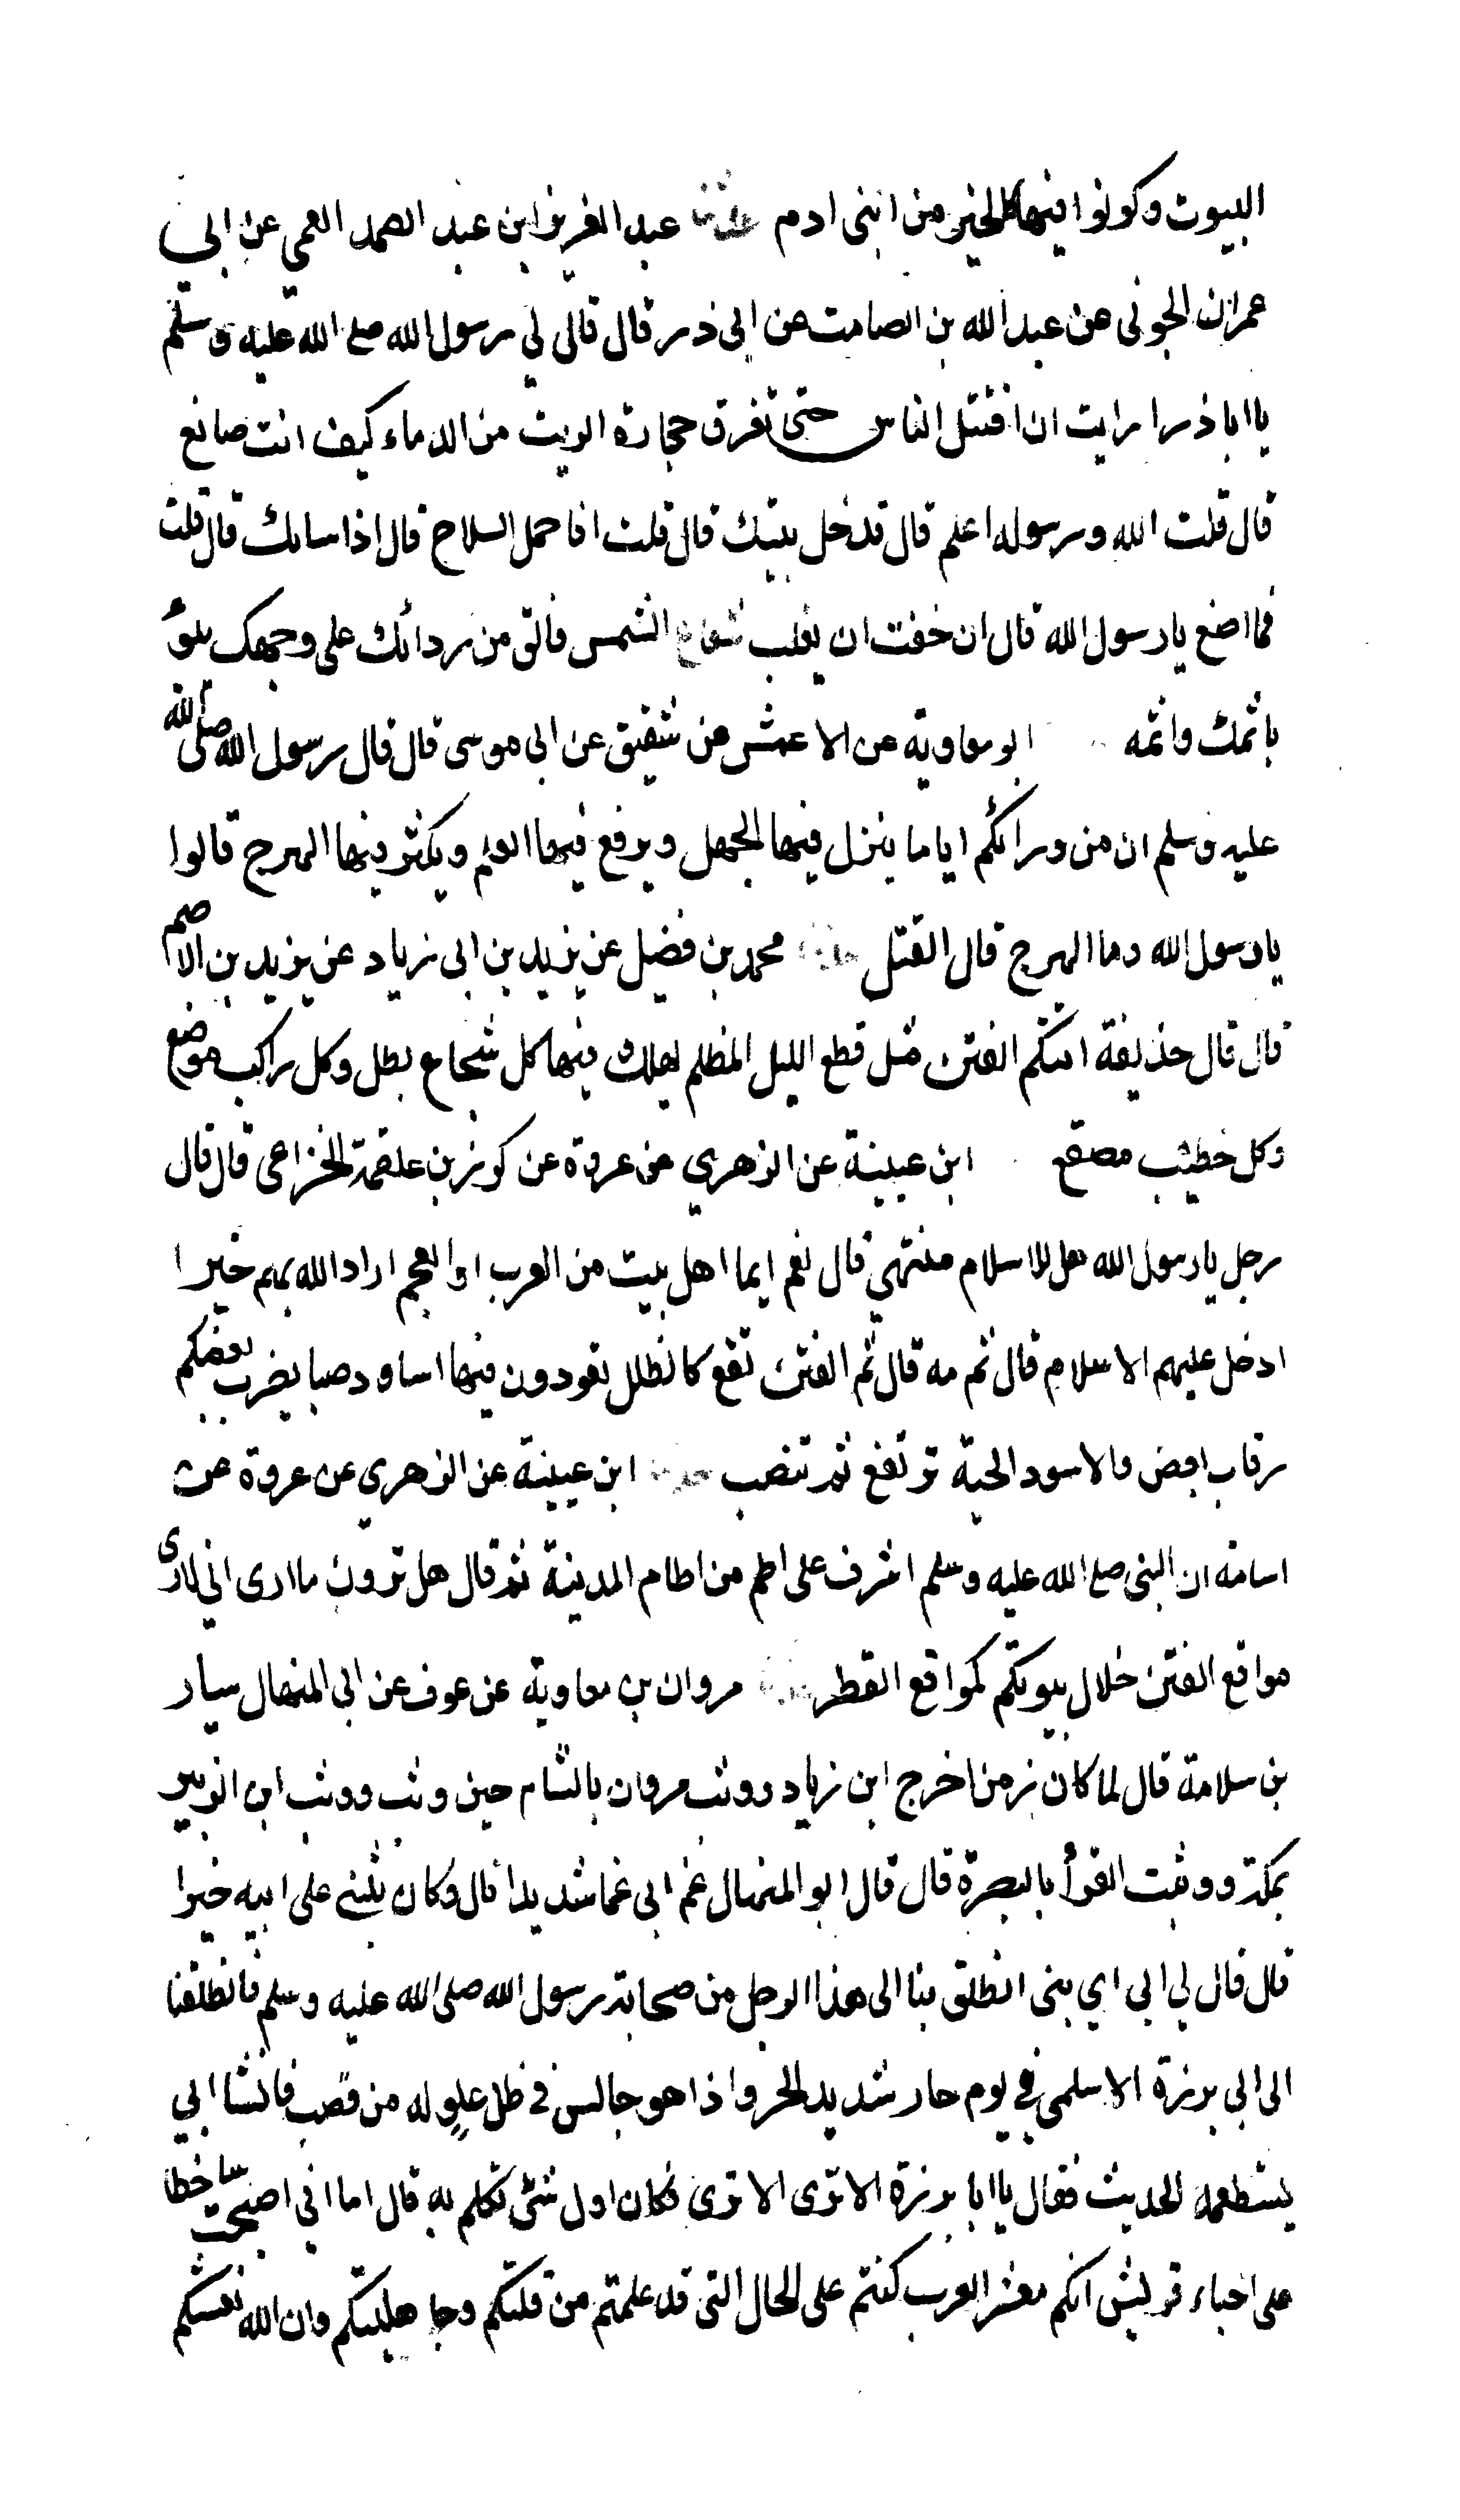 البيوت وكونوا فيها كالخير من ابنى ادم حدثنا عبد العزيز ابن عبد الصمد العمي عن ابي
عمران الجونى عن عبد الله بن الصامت عن ابى ذر قال قال لي رسول الله صلع الله عليه وسلم
يا اباذر ارايت ان اقتتل الناس حتى تغرق حجارة الزيت من الدماء كيف انت صانع
قال قلت الله ورسوله اعلم قال تدخل بيتك قال قلت افاحمل السلاح قال اذا قال قلت
فما اصنع يا رسول الله قال ان خفت ان يغلب شعاع الشمس فالق من ردائك على وجهك يبوء
باثمك واثمه ابو معاوية عن الاعمش عن شقيق عن ابى موسى قال قال رسول الله صلى الله
عليه وسلم ان من ورائكم اياما ينزل فيها الجهل ويرفع فيها العلم ويكثر فيها الهرج قالوا
يا رسول الله وما الهرج قال القتل حدثنا محمد بن فضيل عن يزيد بن ابى زياد عن يزيد بن الاصم
قال قال حذيفة اتتكم الفتن مثل قطع الليل المظلم يهلك فيها كل شجاع بطل وكل راكب موضع
وكل خطيب مصقع ابن عيينة عن الزهري عن عروة عن كرز بن علقمة الخزاعى قال قال
رجل يا رسول الله هل للاسلام منتهي قال نعم ايما اهل بيت من العرب او العجم اراد الله بهم خيرا
ادخل عليهم الاسلام قال ثم مه قال ثم الفتن تقع كالظلل تعودون فيها اساود صبا يضرب بعضكم
رقاب بعض والاسود الحية ترتفع ثم تنصب حدثنا ابن عيينة عن الزهري عن عروة عن
اسامة ان النبى صلع الله عليه وسلم اشرف على اطم من اطام المدينة ثم قال هل ترون ما ارى اني لارى
مواقع الفتن خلال بيوتكم كمواقع القطر حدثنا مروان بن معاوية عن عوف عن ابى المنهال سيار
بن سلامة قال لما كان زمن اخرج ابن زياد ووثب مروان بالشام حين وثب ووثب ابن الزبير
بمكة ووثبت القرأ بالبصرة قال قال ابو المنهال غم ابى غما شديدا قال وكان يثنى على ابيه خيرا
قال قال لي ابى اي بنى انطلق بنا الى هذا الرجل من صحابة رسول الله صلى الله عليه وسلم فانطلقنا
الى ابى برزة الاسلمى في يوم حار شديد الحر واذا هو جالس في ظل علو له من قصب فانشا ابي
يستطعمه الحديث فقال يا ابا برزة الا ترى الا ترى فكان اول شئ تكلم به قال اما انى اصبحت ساخطا
على احياء قريش انكم معشر العرب كنتم على الحال التى قد علمتم من قلتكم وجاهليتكم وان الله نعشكم